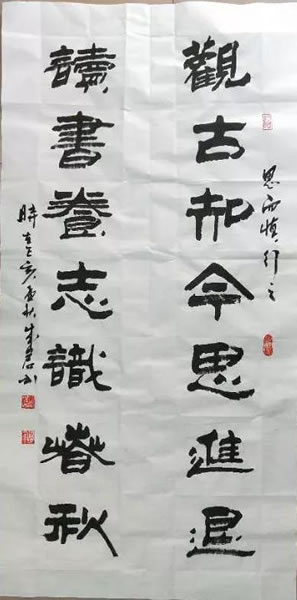 思而慎行之
觀古却今思進退
讀書養志識春秋
時 亥 秋